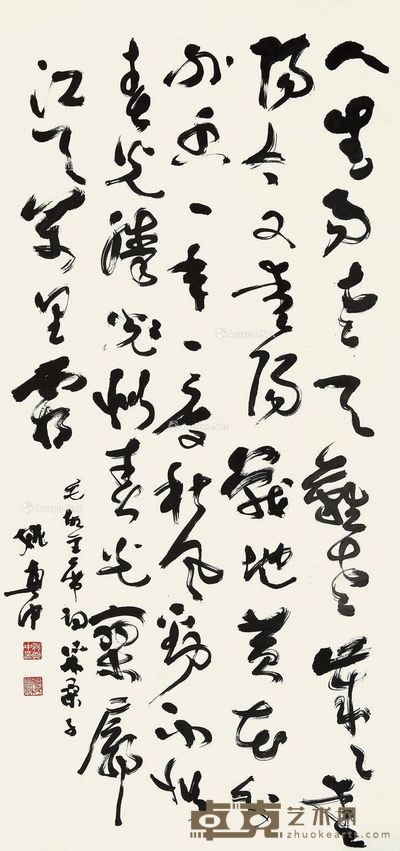 人生易老天難老歲〻重
陽今又重陽戰地黃花分
外香一年一度秋風勁不似
春光勝似春光寥廓
江天萬里霜
毛故主席詞采桑子
姚奠中
卓克艺术网
zhuokearts.com
Artron.Net